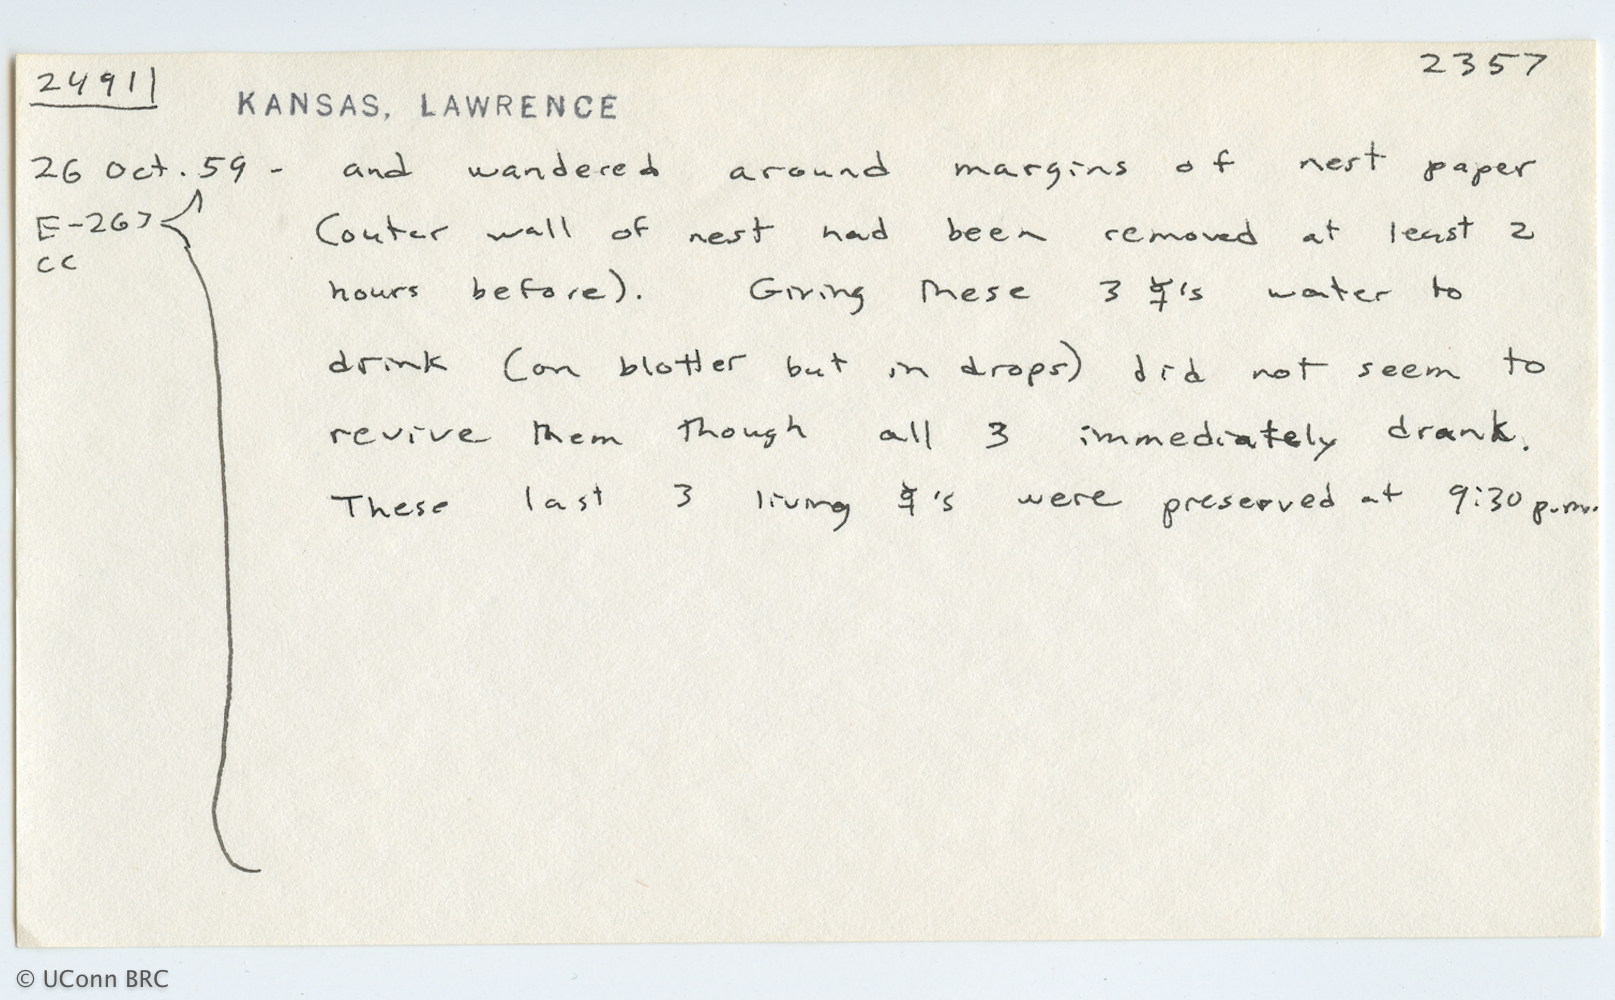 24911
2357
KANSAS, LAWRENCE
26 Oct. 59 - and wandered around margins of nest paper
E-267 (outer wall of nest had been removed at least 2
CC
hours before). Giving these 3 ☿'s water to
drink (on blotter but in drops) did not seem to
revive them though all 3 immediately drank.
These last 3 living ☿'s were preserved at 9:30 p.m.
© UConn BRC